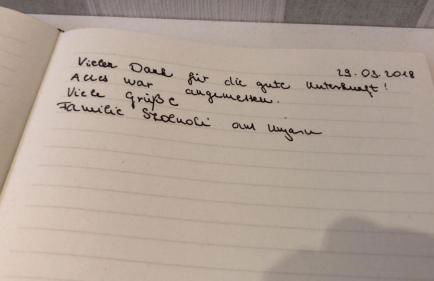 29.03.2018
Vielen Dank für die gute Unterkunft!
Alles war angemessen.
Viele Grüße
Familie Szolnoki aus Ungarn